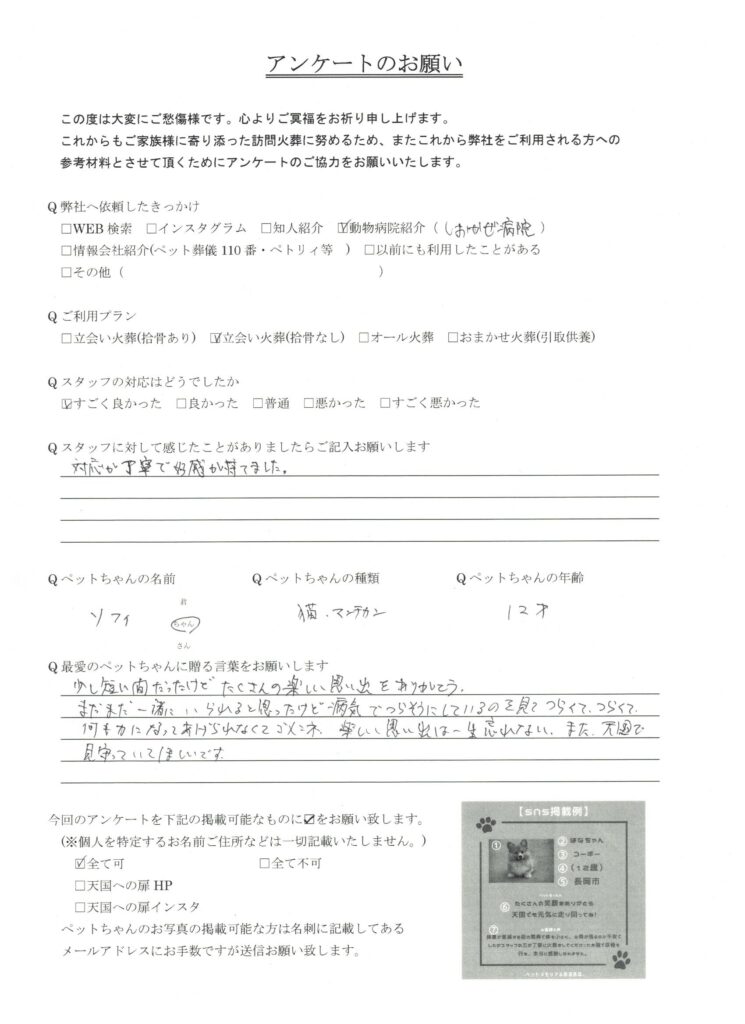 アンケートのお願い
この度は大変にご愁傷様です。心よりご冥福をお祈り申し上げます。
これからもご家族様に寄り添った訪問火葬に努めるため、またこれから弊社をご利用される方への
参考材料とさせて頂くためにアンケートのご協力をお願いいたします。
Q 弊社へ依頼したきっかけ
□WEB 検索 □インスタグラム □知人紹介 ☑動物病院紹介（しおかぜ病院）
□情報会社紹介(ペット葬儀 110 番・ペトリィ等 ) □以前にも利用したことがある
□その他（ ）
Q ご利用プラン
□立会い火葬(拾骨あり) ☑立会い火葬(拾骨なし) □オール火葬 □おまかせ火葬(引取供養)
Q スタッフの対応はどうでしたか
☑すごく良かった □良かった □普通 □悪かった □すごく悪かった
Q スタッフに対して感じたことがありましたらご記入お願いします
対応が丁寧で好感が持てました。
Q ペットちゃんの名前 Q ペットちゃんの種類 Q ペットちゃんの年齢
君
ソフィ ちゃん 猫・マンチカン 12才
さん
Q 最愛のペットちゃんに贈る言葉をお願いします
少し短い間だったけど たくさんの楽しい思い出を ありがとう。
まだまだ一緒に いられると思ったけど 病気で つらそうにしているのを見て つらくて、つらくて、
何も力になってあげられなくてゴメンネ。 楽しい思い出は一生忘れない。また、天国で
見守っていてほしいです。
今回のアンケートを下記の掲載可能なものに☑をお願い致します。
(※個人を特定するお名前ご住所などは一切記載いたしません。)
☑全て可 □全て不可
□天国への扉 HP
□天国への扉インスタ
ペットちゃんのお写真の掲載可能な方は名刺に記載してある
メールアドレスにお手数ですが送信お願い致します。
【sns掲載例】
① ② はなちゃん
③ コーギー
④ （12歳）
⑤ 長岡市
⑥ たくさんの笑顔をありがとう
天国でも元気に走り回ってね！
⑦